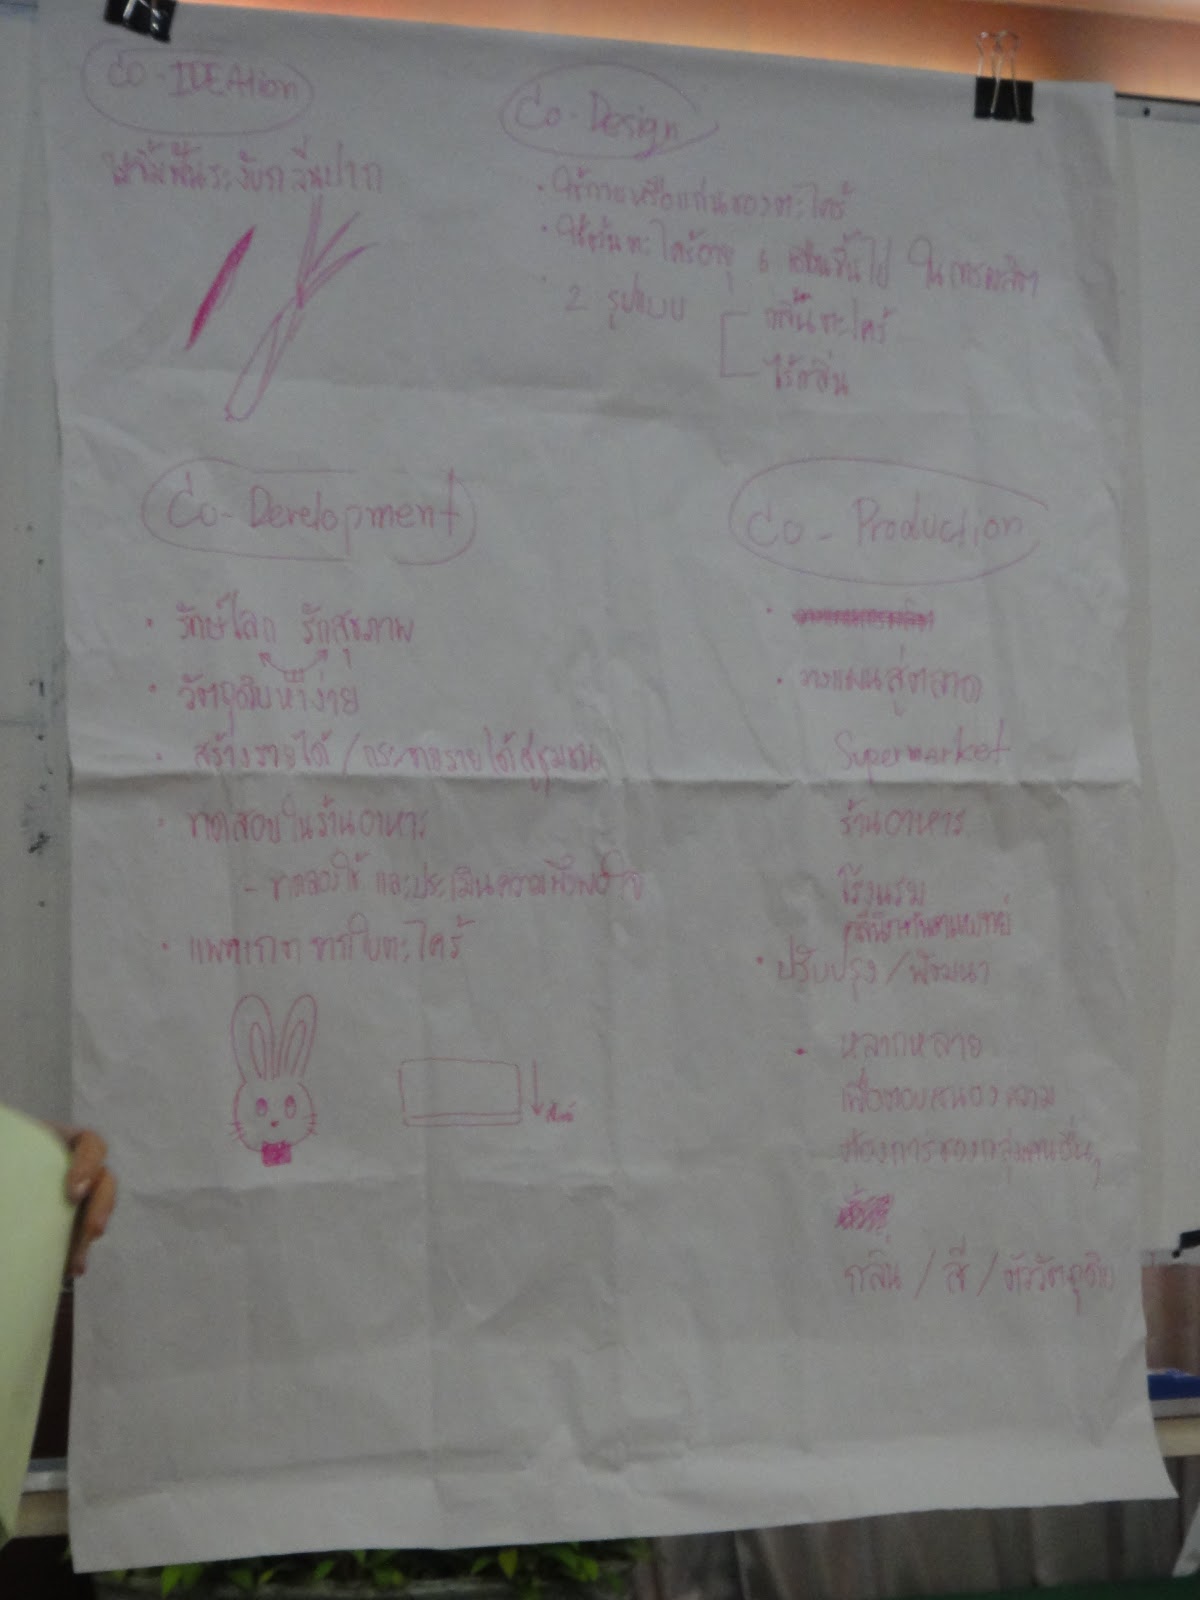 Co-IDEAtion
ไม้จิ้มฟันระงับกลิ่นปาก
Co-Design
• ใช้กาบหรือแก่นของตะไคร้
• ใช้ต้นตะไคร้อายุ 6 เดือนขึ้นไป ในการผลิต
• 2 รูปแบบ
กลิ่นตะไคร้
ไร้กลิ่น
Co-Development
• รักษ์โลก รักสุขภาพ
• วัตถุดิบหาง่าย
• สร้างรายได้ / กระจายรายได้สู่ชุมชน
• ทดสอบในร้านอาหาร
- ทดลองใช้ และประเมินความพึงพอใจ
• แพคเกจจากใบตะไคร้
Co-Production
• วางแผนสู่ตลาด
Supermarket
ร้านอาหาร
โรงแรม
คลีนิคทันตแพทย์
• ปรับปรุง / พัฒนา
• หลากหลาย
เพื่อตอบสนองความ
ต้องการของกลุ่มคนอื่นๆ
กลิ่น / สี / ตัววัตถุดิบ